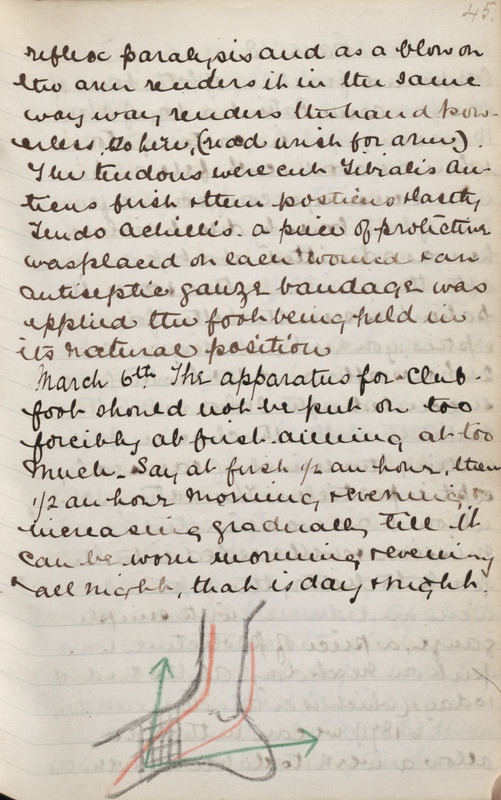 45.
reflex paralysis and as a blow on
the arm renders it in the same
way way renders the hand pow-
erless to hire, (read wrish for arm).
The tendons were cut Tibialis An-
ticus first & then posticus & lastly
Tendo Achillis. a piece of protective
was placed on each wound & an
antiseptic gauze bandage was
applied the foot being held in
its natural position
March 6th The apparatus for Club-
foot should not be put on too
forcibly at first aiming at too
much - Say at first 1/2 an hour, then
1/2 an hour morning & evening &
increasing gradually till it
can be worn morning & evening
& all night, that is day & night.